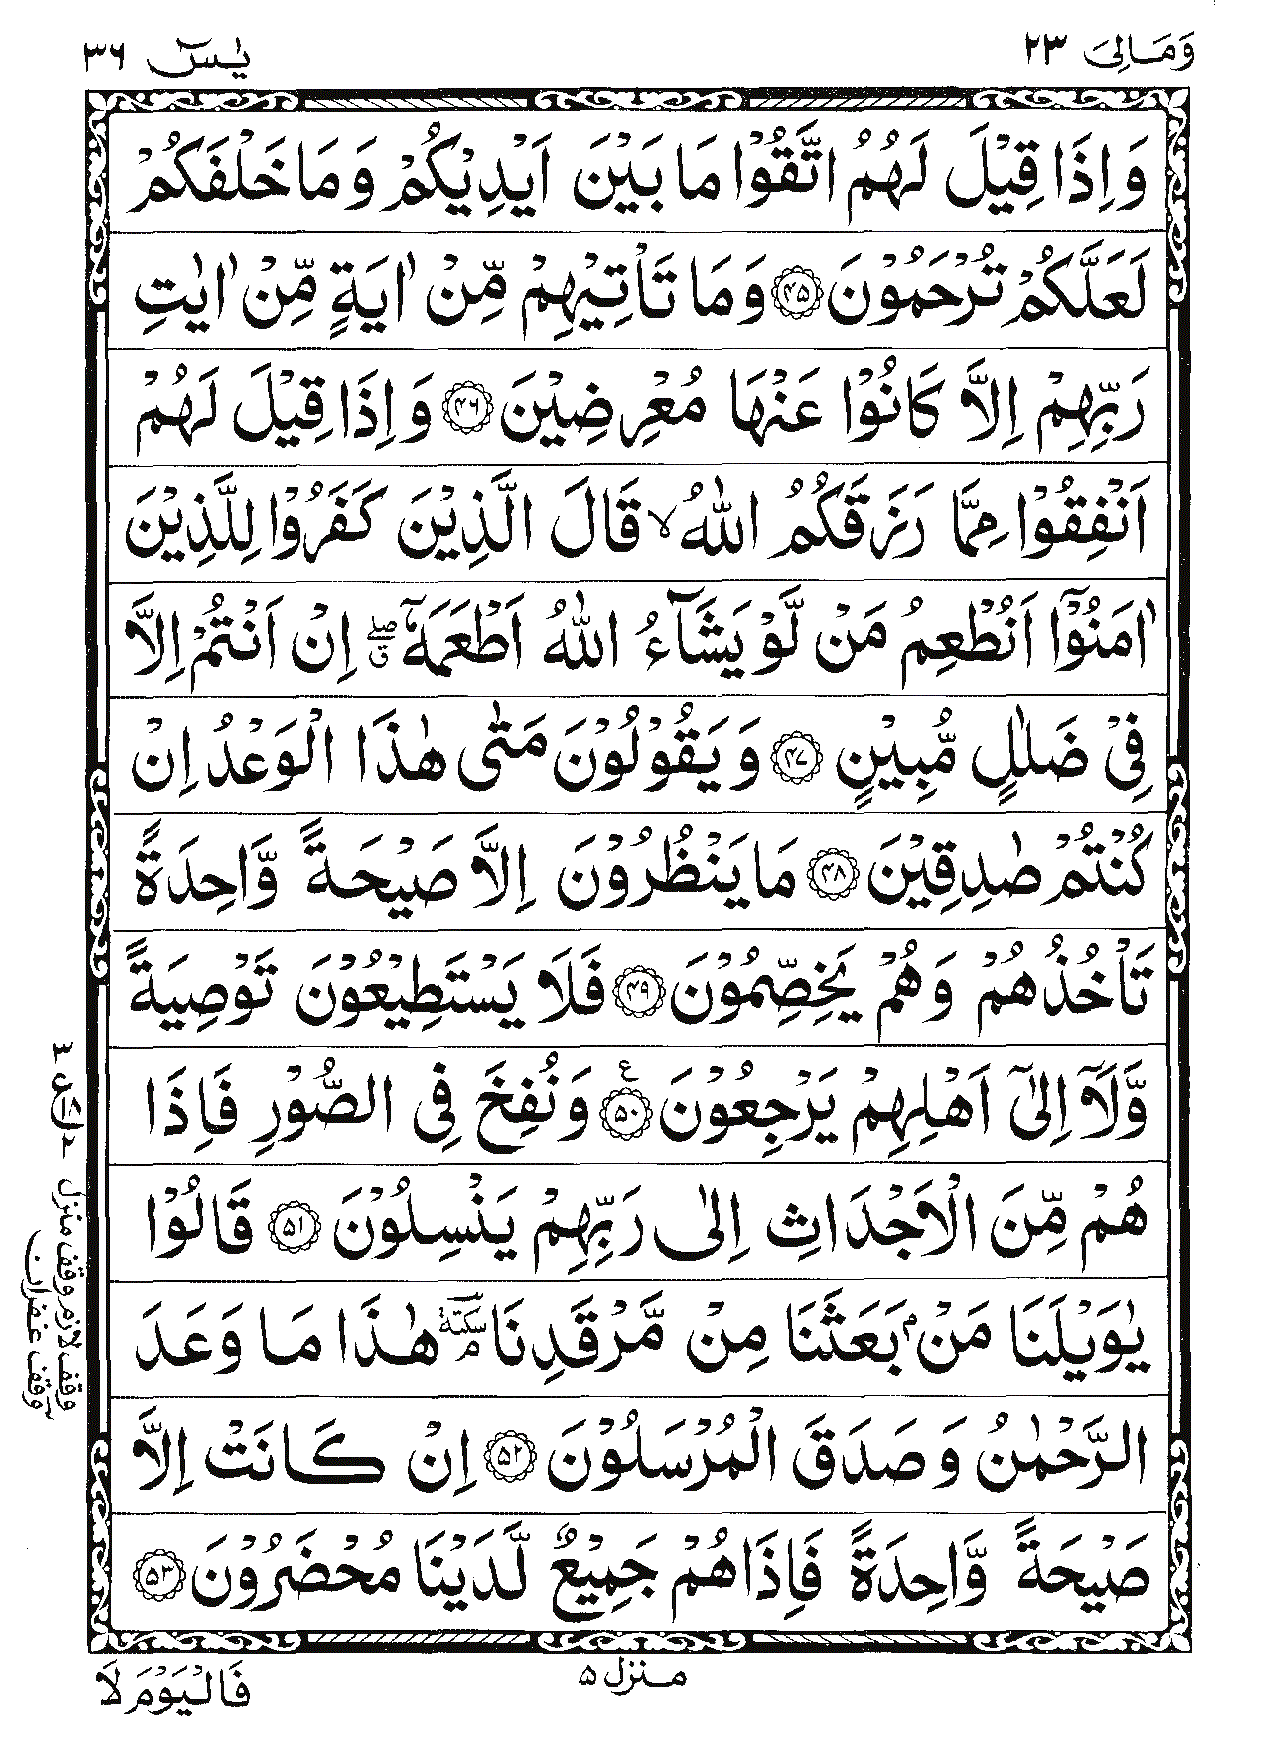 وَمَالِیَ ٢٣
يٰسٓ ٣٦
وَاِذَا قِيْلَ لَهُمُ اتَّقُوْا مَا بَيْنَ اَيْدِيْكُمْ وَمَا خَلْفَكُمْ
لَعَلَّكُمْ تُرْحَمُوْنَ ﴿۴۵﴾ وَمَا تَاْتِيْهِمْ مِّنْ اٰيَةٍ مِّنْ اٰيٰتِ
رَبِّهِمْ اِلَّا كَانُوْا عَنْهَا مُعْرِضِيْنَ ﴿۴۶﴾ وَاِذَا قِيْلَ لَهُمْ
اَنْفِقُوْا مِمَّا رَزَقَكُمُ اللّٰهُ ۙ قَالَ الَّذِيْنَ كَفَرُوْا لِلَّذِيْنَ
اٰمَنُوْٓا اَنُطْعِمُ مَنْ لَّوْ يَشَآءُ اللّٰهُ اَطْعَمَهٗٓ ۖق اِنْ اَنْتُمْ اِلَّا
فِیْ ضَلٰلٍ مُّبِيْنٍ ﴿۴۷﴾ وَيَقُوْلُوْنَ مَتٰى هٰذَا الْوَعْدُ اِنْ
كُنْتُمْ صٰدِقِيْنَ ﴿۴۸﴾ مَا يَنْظُرُوْنَ اِلَّا صَيْحَةً وَّاحِدَةً
تَاْخُذُهُمْ وَهُمْ يَخِصِّمُوْنَ ﴿۴۹﴾ فَلَا يَسْتَطِيْعُوْنَ تَوْصِيَةً
وَّلَآ اِلٰٓى اَهْلِهِمْ يَرْجِعُوْنَ ﴿۵۰﴾ ع وَنُفِخَ فِی الصُّوْرِ فَاِذَا
هُمْ مِّنَ الْاَجْدَاثِ اِلٰى رَبِّهِمْ يَنْسِلُوْنَ ﴿۵۱﴾ قَالُوْا
يٰوَيْلَنَا مَنْۢ بَعَثَنَا مِنْ مَّرْقَدِنَا ۘ سكتة هٰذَا مَا وَعَدَ
الرَّحْمٰنُ وَصَدَقَ الْمُرْسَلُوْنَ ﴿۵۲﴾ اِنْ كَانَتْ اِلَّا
صَيْحَةً وَّاحِدَةً فَاِذَا هُمْ جَمِيْعٌ لَّدَيْنَا مُحْضَرُوْنَ ﴿۵۳﴾
وقف لازم وقف منزل
وقف غفران
منزل ۵
فَالْيَوْمَ لَا